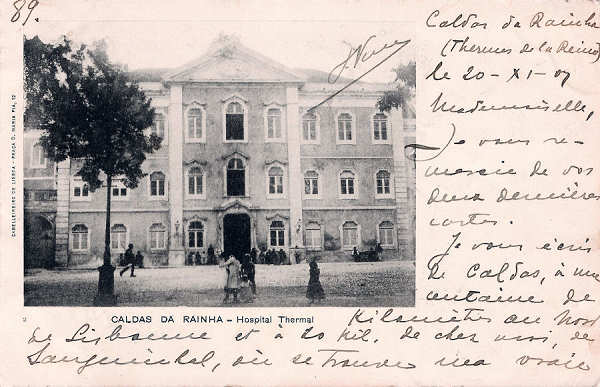 89.
Caldas da Rainha
(Thermes de la Reine)
le 20-XI-07
Mademoiselle,
Je vous re-
mercie de vos
deux dernières
cartes.
Je vous écris
de Caldas, à une
centaine de
Kilomètres au Nord
de Lisbonne et à 20 kil. de chez moi, de
où se trouve ma vraie
CALDAS DA RAINHA – Hospital Thermal
CABELLEIREIRO DE LISBOA - PRAÇA D. MARIA PIA, 12